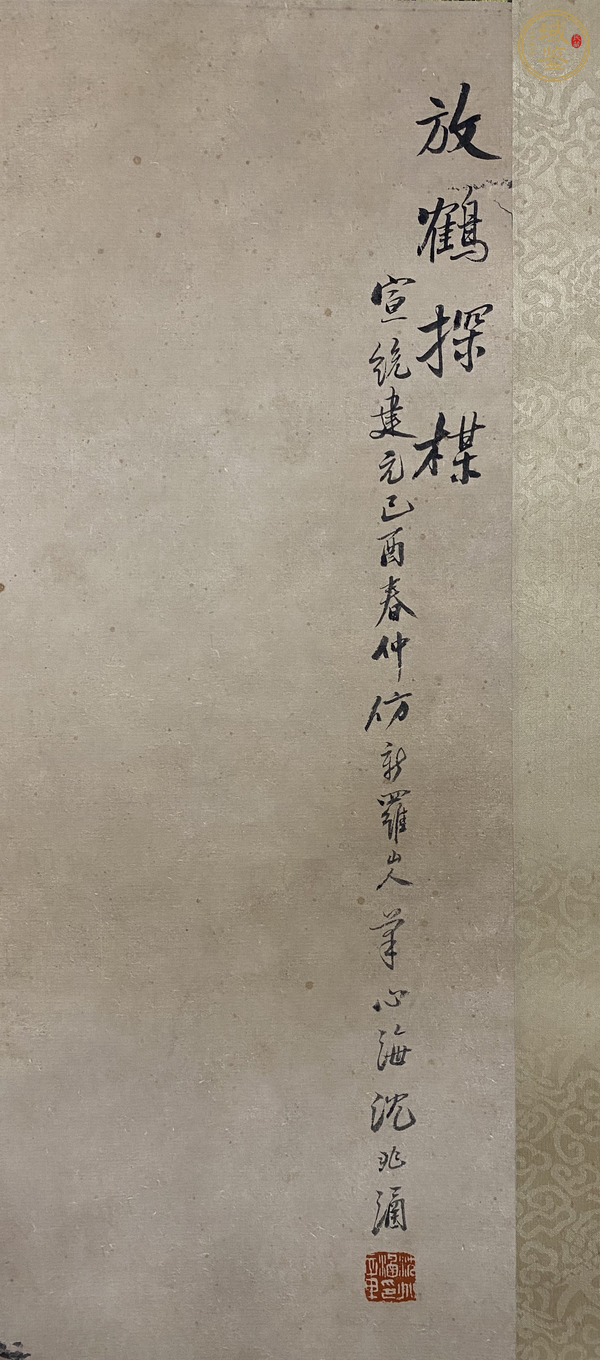 放鶴探楳
宣統建元己酉春仲仿新羅山人筆心海沈兆涵